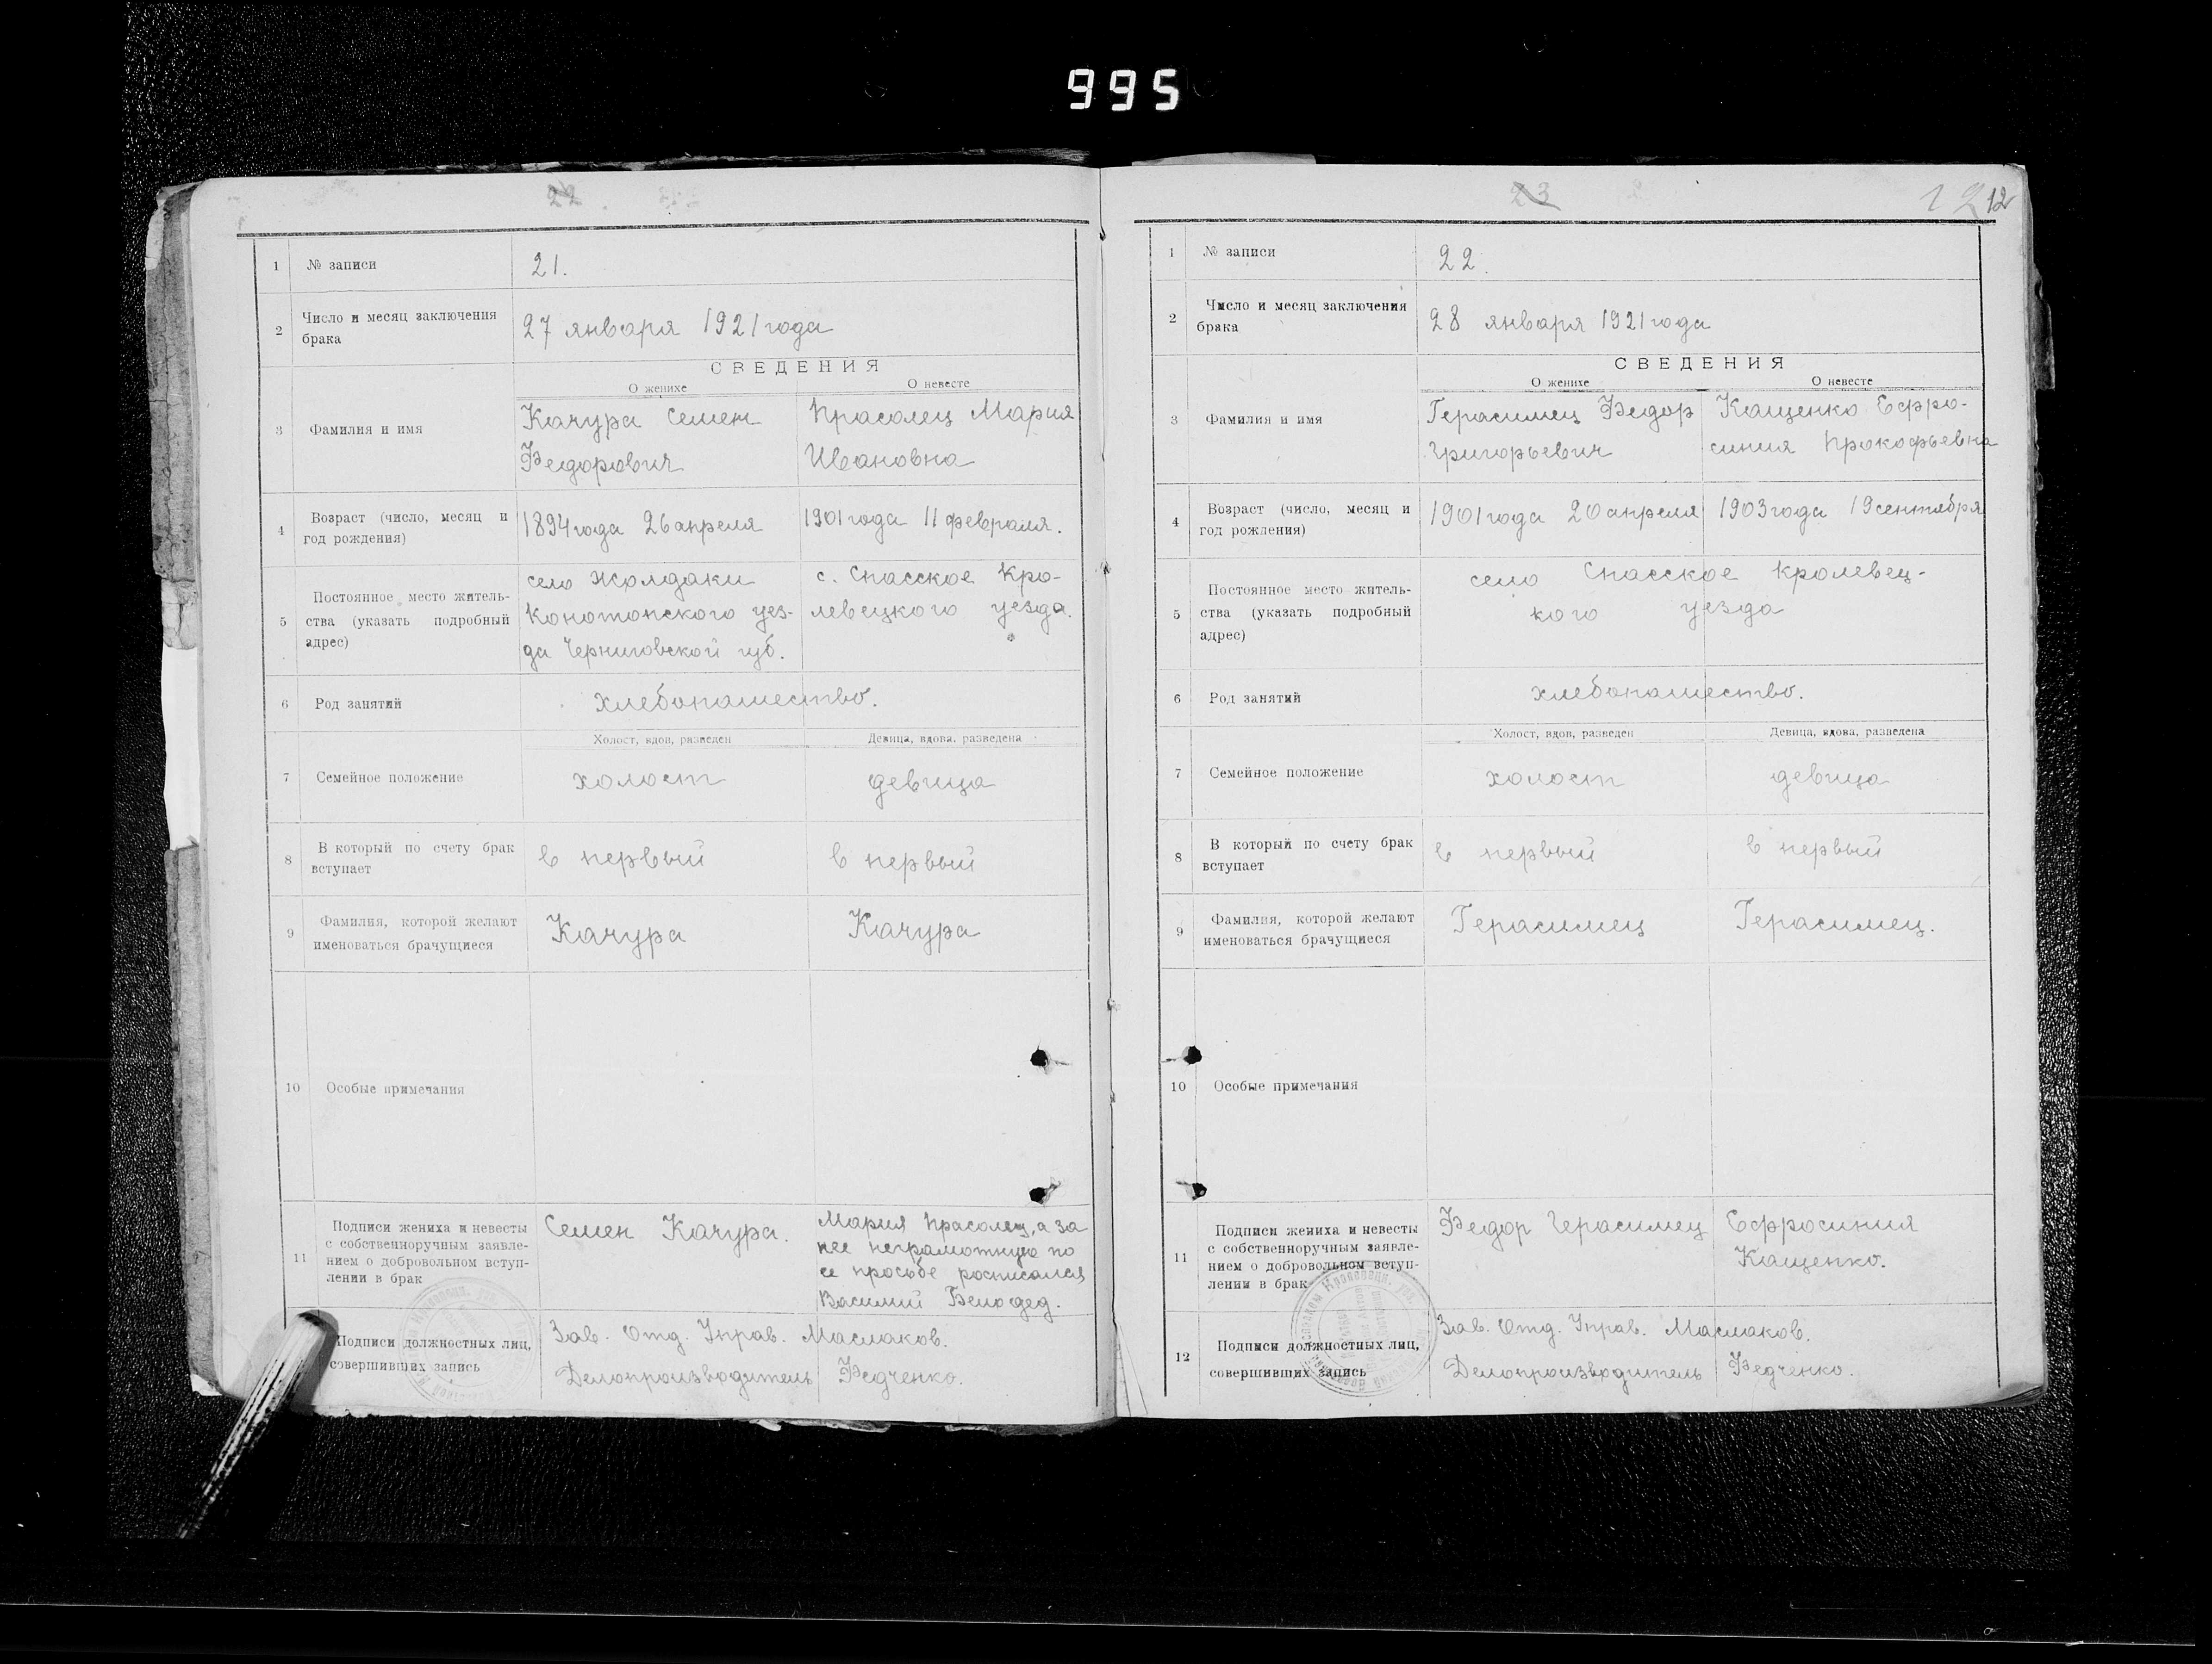 995
22
1 № записи 21.
2 Число и месяц заключения
брака
27 января 1921 года
СВЕДЕНИЯ
О женихе О невесте
3 Фамилия и имя
Качура Семен
Федорович
Прасолец Мария
Ивановна
4 Возраст (число, месяц и
год рождения)
1894 года 26 апреля
1901 года 11 февраля.
5 Постоянное место житель-
ства (указать подробный
адрес)
село Жолдаки
Конотопского уез-
да Черниговской губ.
с. Спасское Кро-
левецкого уезда.
6 Род занятий хлебопашество.
Холост, вдов, разведен Девица, вдова, разведена
7 Семейное положение холост девица
8 В который по счету брак
вступает
в первый в первый
9 Фамилия, которой желают
именоваться брачущиеся
Качура Качура
10 Особые примечания
11 Подписи жениха и невесты
с собственноручным заявле-
нием о добровольном вступ-
лении в брак
Семен Качура.
Мария Прасолец, а за
нее неграмотную по
ее просьбе росписался
Василий Белодед.
Подписи должностных лиц,
совершивших запись
Зав. Отд. Управ. Маслаков.
Делопроизводитель Федченко.
23
12 12
1 № записи 22.
2 Число и месяц заключения
брака
28 января 1921 года
СВЕДЕНИЯ
О женихе О невесте
3 Фамилия и имя
Герасимец Федор
Григорьевич
Кащенко Ефро-
синия Прокофьевна
4 Возраст (число, месяц и
год рождения)
1901 года 20 апреля
1903 года 19 сентября
5 Постоянное место житель-
ства (указать подробный
адрес)
село Спасское Кролевец-
кого уезда
6 Род занятий хлебопашество.
Холост, вдов, разведен Девица, вдова, разведена
7 Семейное положение холост девица
8 В который по счету брак
вступает
в первый в первый
9 Фамилия, которой желают
именоваться брачущиеся
Герасимец Герасимец.
10 Особые примечания
11 Подписи жениха и невесты
с собственноручным заявле-
нием о добровольном вступ-
лении в брак
Федор Герасимец
Ефросиния
Кащенко.
12 Подписи должностных лиц,
совершивших запись
Зав. Отд. Управ. Маслаков.
Делопроизводитель Федченко.